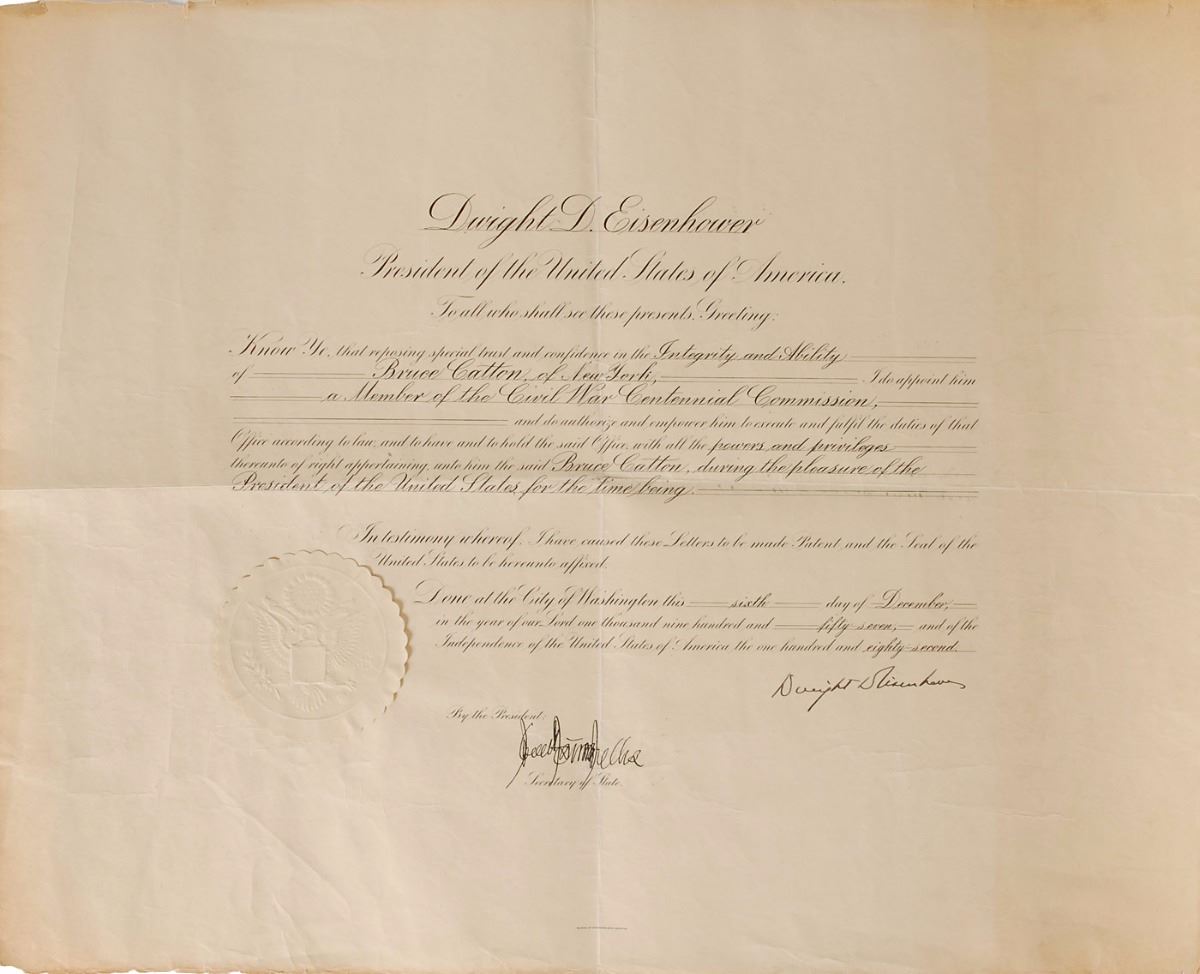 Dwight D. Eisenhower
President of the United States of America.
To all who shall see these presents, Greeting:
Know Ye, that reposing special trust and confidence in the Integrity and Ability
of Bruce Catton, of New York, I do appoint him
a Member of the Civil War Centennial Commission,
and do authorize and empower him to execute and fulfil the duties of that
Office according to law, and to have and to hold the said Office, with all the powers and privileges
thereunto of right appertaining, unto him the said Bruce Catton, during the pleasure of the
President of the United States, for the time being.
In testimony whereof, I have caused these Letters to be made Patent, and the Seal of the
United States to be hereunto affixed.
Done at the City of Washington this sixth day of December,
in the year of our Lord one thousand nine hundred and fifty-seven, and of the
Independence of the United States of America the one hundred and eighty-second.
Dwight D Eisenhower
By the President:
Secretary of State.